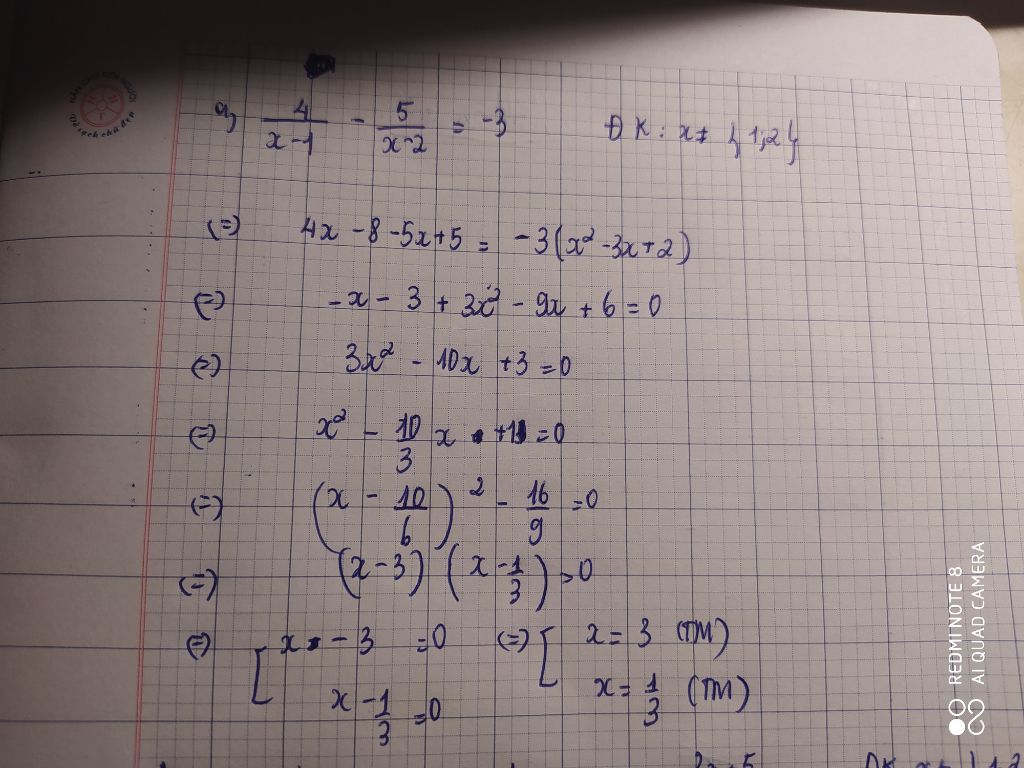 a, 4/(x-1) - 5/(x-2) = -3 ĐK: x ≠ {1;2}
(=) 4x - 8 - 5x + 5 = -3(x² - 3x + 2)
(=) -x - 3 + 3x² - 9x + 6 = 0
(=) 3x² - 10x + 3 = 0
(=) x² - 10/3 x + 1 = 0
(=) (x - 10/6)² - 16/9 = 0
(=) (x - 3) (x - 1/3) = 0
(=) [ x - 3 = 0 (=) [ x = 3 (TM)
x - 1/3 = 0 x = 1/3 (TM)
REDMI NOTE 8
AI QUAD CAMERA